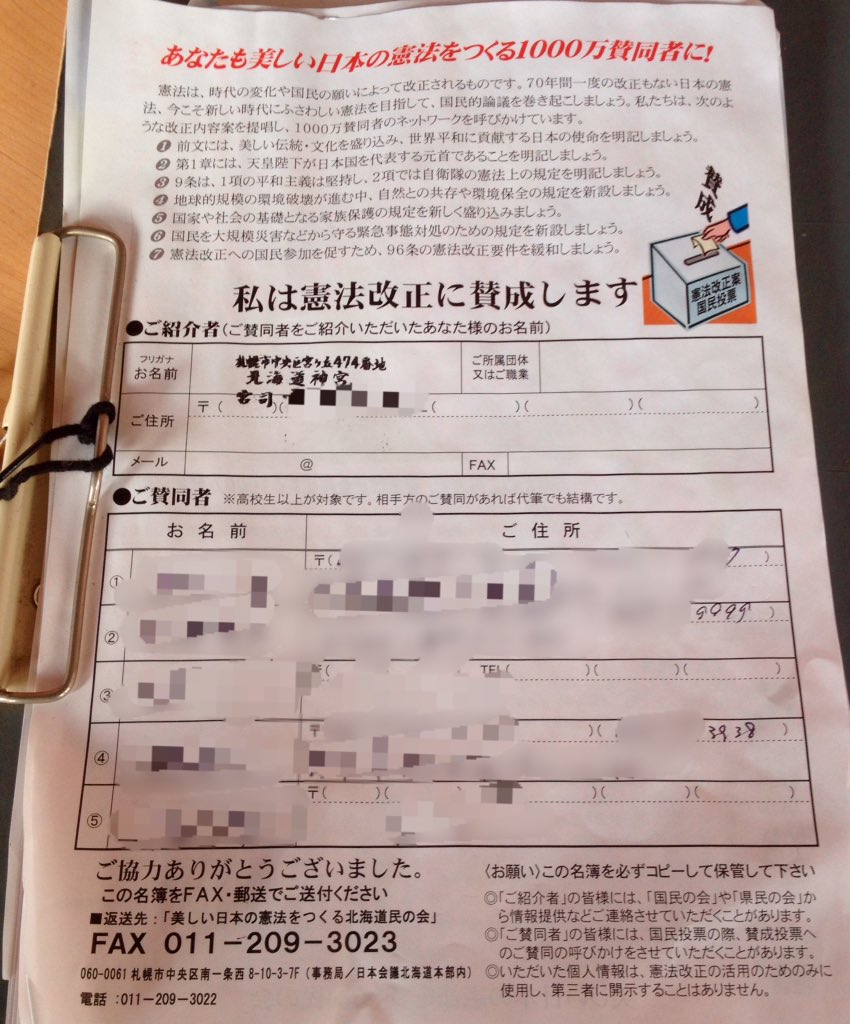 あなたも美しい日本の憲法をつくる1000万賛同者に!
憲法は、時代の変化や国民の願いによって改正されるものです。70年間一度の改正もない日本の憲
法、今こそ新しい時代にふさわしい憲法を目指して、国民的論議を巻き起こしましょう。私たちは、次のよ
うな改正内容案を提唱し、1000万賛同者のネットワークを呼びかけています。
❶ 前文には、美しい伝統・文化を盛り込み、世界平和に貢献する日本の使命を明記しましょう。
❷ 第1章には、天皇陛下が日本国を代表する元首であることを明記しましょう。
❸ 9条は、1項の平和主義は堅持し、2項では自衛隊の憲法上の規定を明記しましょう。
❹ 地球的規模の環境破壊が進む中、自然との共存や環境保全の規定を新設しましょう。
❺ 国家や社会の基礎となる家族保護の規定を新しく盛り込みましょう。
❻ 国民を大規模災害などから守る緊急事態対処のための規定を新設しましょう。
❼ 憲法改正への国民参加を促すため、96条の憲法改正要件を緩和しましょう。
賛成
憲法改正案
国民投票
私は憲法改正に賛成します
●ご紹介者(ご賛同者をご紹介いただいたあなた様のお名前)
フリガナ
お名前
札幌市中央区宮ヶ丘474番地
北海道神宮
宮司
ご所属団体
又はご職業
ご住所
〒( )( ( )( )( )
メール
@
FAX
●ご賛同者 ※高校生以上が対象です。相手方のご賛同があれば代筆でも結構です。
お名前 ご住所
① 〒( 7 )
② 9999 )
③ 〒( TEL( )( )( )
④ 〒 )( 3938 )
⑤ 〒( )( )( )( )( )
ご協力ありがとうございました。
この名簿をFAX・郵送でご送付ください
■返送先:「美しい日本の憲法をつくる北海道民の会」
FAX 011-209-3023
060-0061 札幌市中央区南一条西 8-10-3-7F (事務局/日本会議北海道本部内)
電話:011-209-3022
〈お願い〉この名簿を必ずコピーして保管して下さい
◎「ご紹介者」の皆様には、「国民の会」や「県民の会」か
ら情報提供などご連絡させていただくことがあります。
◎「ご賛同者」の皆様には、国民投票の際、賛成投票へ
のご賛同の呼びかけをさせていただくことがあります。
◎いただいた個人情報は、憲法改正の活用のためのみに
使用し、第三者に開示することはありません。